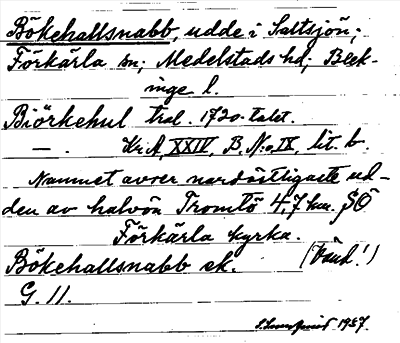 Bökehallsnabb, udde i Saltsjön;
Förkärla sn; Medelstads hd; Bleck-
inge l.
Biörkehul tral. 1720-talet.
— . Kr. A, XXIV, B, N:o IX, lit. b.
Namnet avser nordöstligaste ud-
den av halvön Tromtö 4,7 km. SÖ
Förkärla kyrka.
Bökehallsnabb ek. (Vänd!)
G. 11.
1957.